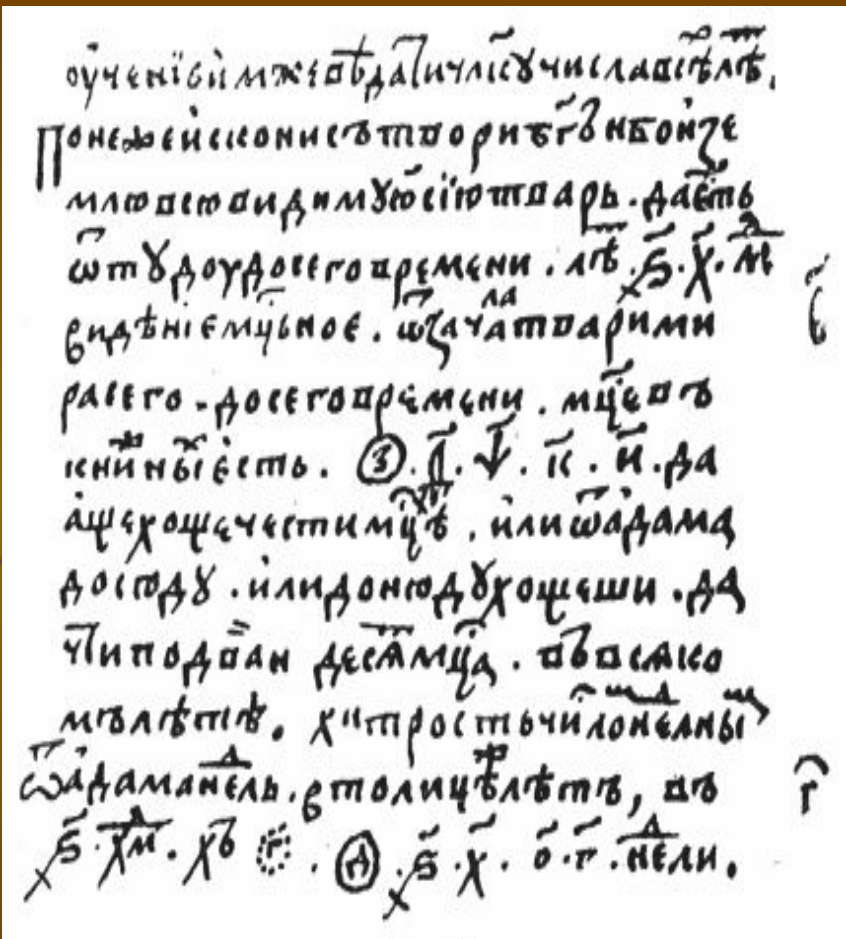 оу҆ченїеи҆мжевѣдат҃ичл҃кꙋчиславсѣⷯлѣⷮ.
Понежеи҆сконисътвориѣг҃ънбои҆зе
млювсювидимꙋюсїютварь. даесⷮь
ѿтꙋдоудосеговремени. лѣⷮ.҂ѕ҃.х҃.м҃д
в҃
видѣнїемц҃ьное. ѿзачⷧ҇атварими
расего. досеговремени. мц҃евъ
книⷤныⷯе҆сть. з⃝.д҃.ѱ҃.к҃.и҃.да
а҆щехощечестимц҃ѣⷯ. и҆лиѿа҆дама
досюдꙋ. и҆лидонюдꙋхощеши. да
чт҃иподван десѧⷮмц҃а. въвсѧко
мълѣтѣ. хитростьчиⷭ҇лонеⷣлныⷯ
ѿа҆даманеⷣль. втолицѣⷯлѣтъ, въ
г҃
҂ѕ҃.хм҃д. хъ г҃. д⃝.҂ѕ҃.х҃.о҃.г҃.неⷣли.